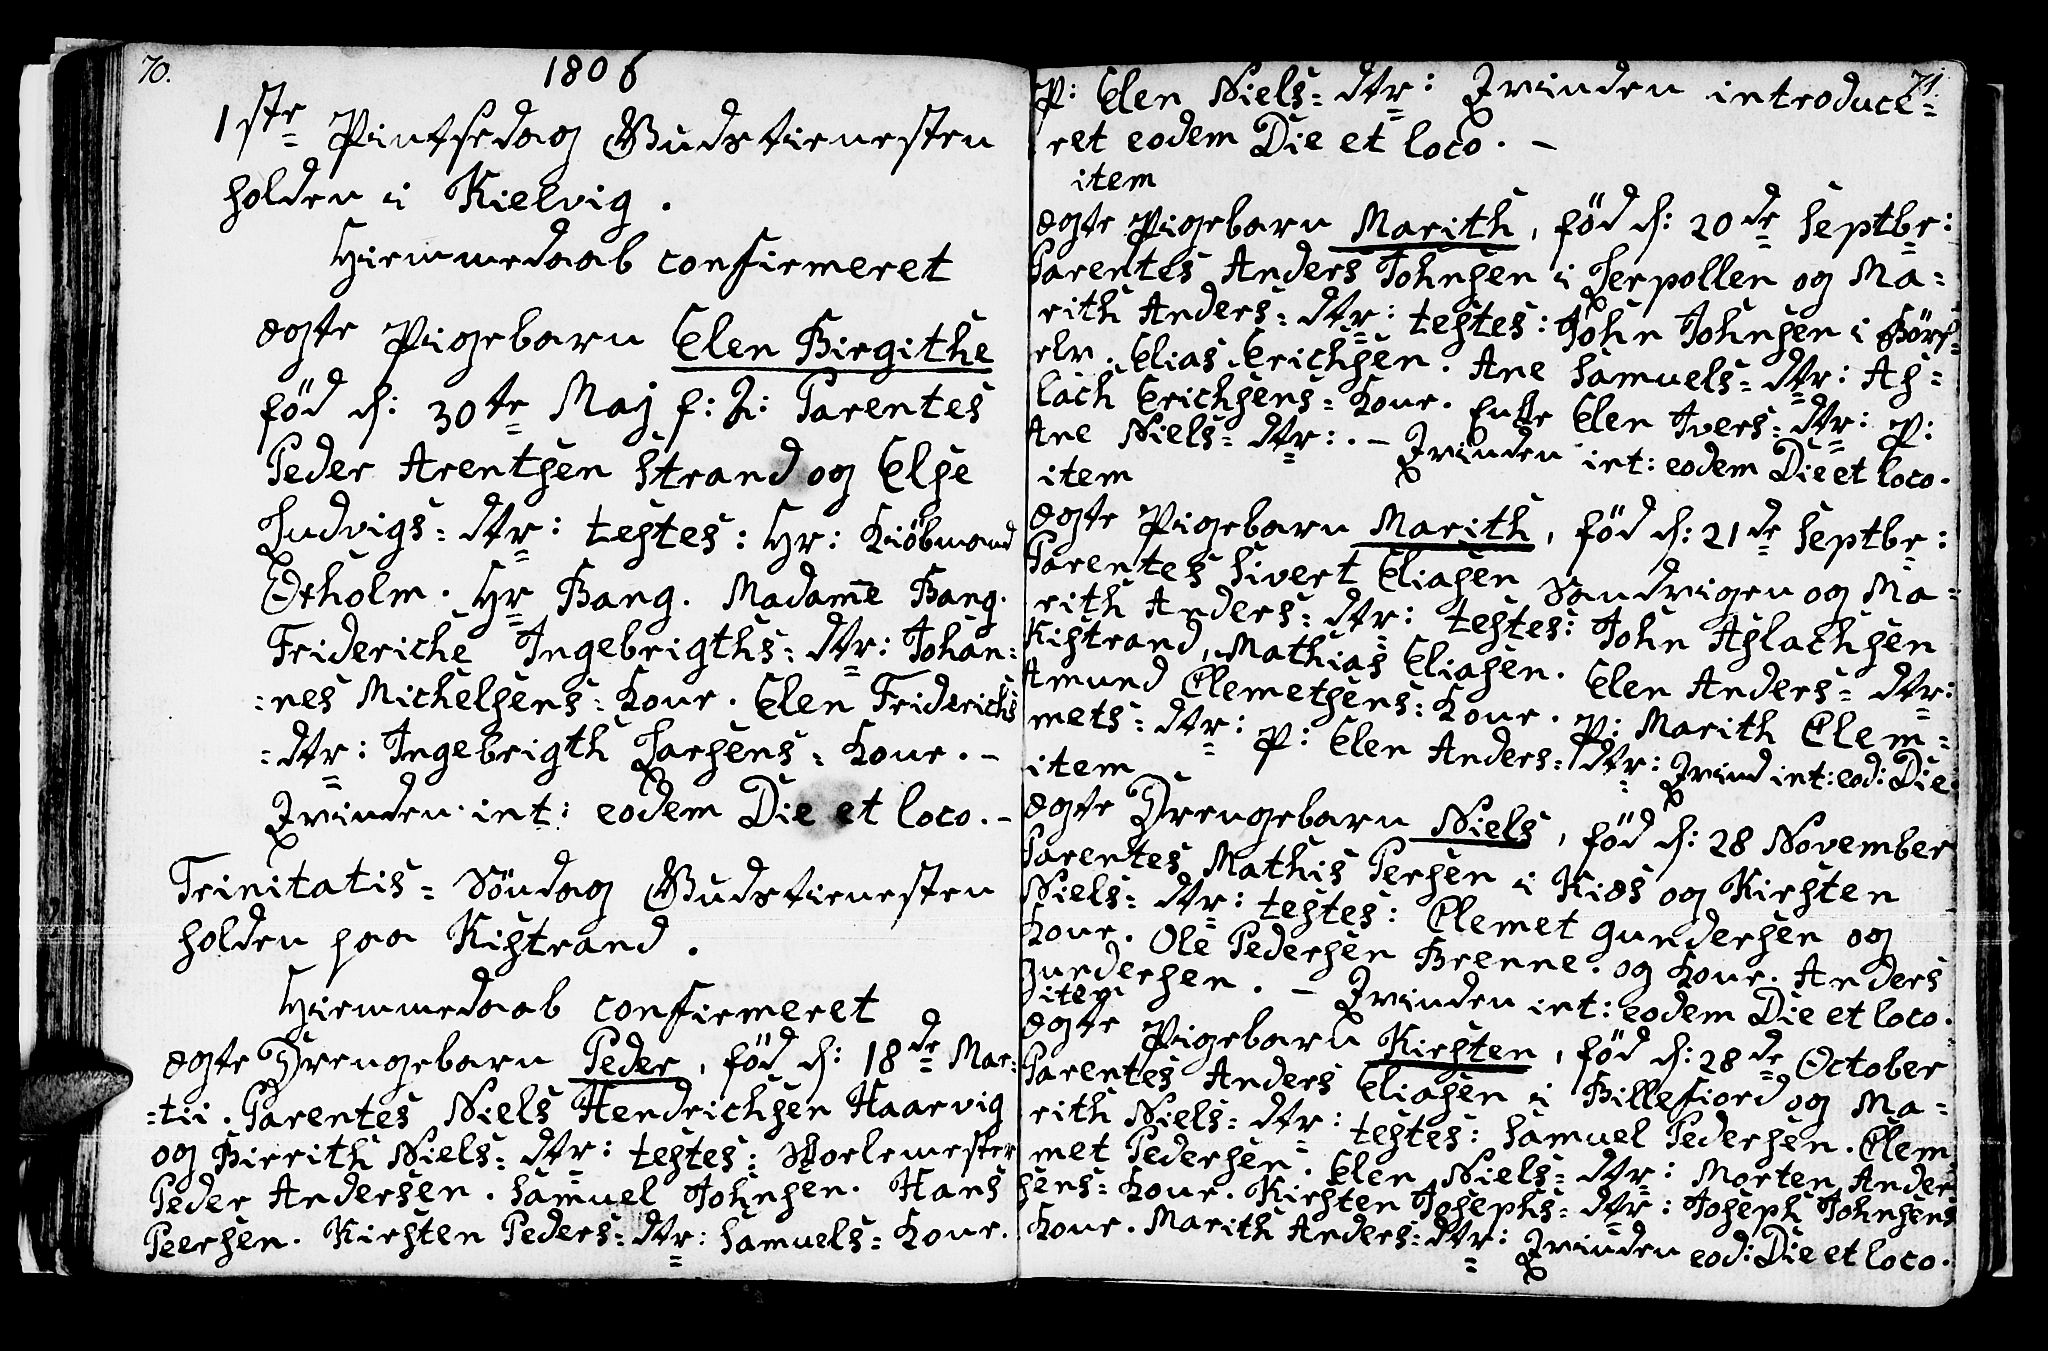 70.
1806
1ste Pintsedag Gudstienesten
holden i Kielvig.
Hiemmedaab confirmeret
ægte Pigebarn Elen Birgithe
född d: 30te Maj f: A: Parentes
Peder Arentsen Strand og Else
Ludvigs=dtr: testes: Hr: Kiöbmand
Oxholm. Hr Bang. Madame Bang.
Frideriche Ingebrigths=dtr: Johan=
=nes Michelsens=Kone. Elen Friderichs
=dtr: Ingebrigth Larsens=Kone.—
Qvinden int: eodem Die et loco.—
Trinitatis=Söndag Gudstienesten
holden paa Kistrand.
Hiemmedaab confirmeret
ægte Drengebarn Peder, föd d: 18de Mar=
=tii. Parentes Niels Hendrichsen Haarvig
og Birrith Niels=dtr: testes: Skolemester
Peder Andersen. Samuel Johnsen. Hans
Peersen. Kirsten Peders=dtr: Samuels=Kone.
71.
P: Elen Niels=dtr: Qvinden introduce=
ret eodem Die et loco.—
item
ægte Pigebarn Marith, föd d: 20de Septbr:
Parentes Anders Johnsen i Lerpollen og Ma=
rith Anders=dtr: testes: John Johnsen i Börs=
elv. Elias Erichsen. Ane Samuels=dtr: As=
lach Erichsens=Kone. Enke Elen Ivers=dtr: P:
Ane Niels=dtr:.— Qvinden int: eodem Die et loco.
item
ægte Pigebarn Marith, föd d: 21de Septbr:
Parentes Sivert Eliasen Sandvigen og Ma=
rith Anders=dtr: testes: John Aslachsen
Kistrand, Mathias Eliasen. Elen Anders=dtr:
Amund Clemetsens=Kone. P: Marith Clem=
mets=dtr: P: Elen Anders=dtr: Qvind int: eod: Die.
item
ægte Drengebarn Niels, föd d: 28 November
Parentes Mathis Persen i Kiæs og Kirsten
Niels=dtr: testes: Clemet Gundersen og
Kone. Ole Pedersen Brenne. og Kone. Anders
Gundersen.— Qvinden int: eodem Die et loco.
item
ægte Pigebarn Kirsten, föd d: 28de October
Parentes Anders Eliasen i Billefiord og Ma=
rith Niels=dtr: testes: Samuel Pedersen. Clem
met Pedersen. Elen Niels=dtr: Morten Ander
sens=Kone. Kirsten Josephs=dtr: Joseph Johnsens
Kone. Marith Anders=dtr: Qvinden eod: Die et loco.